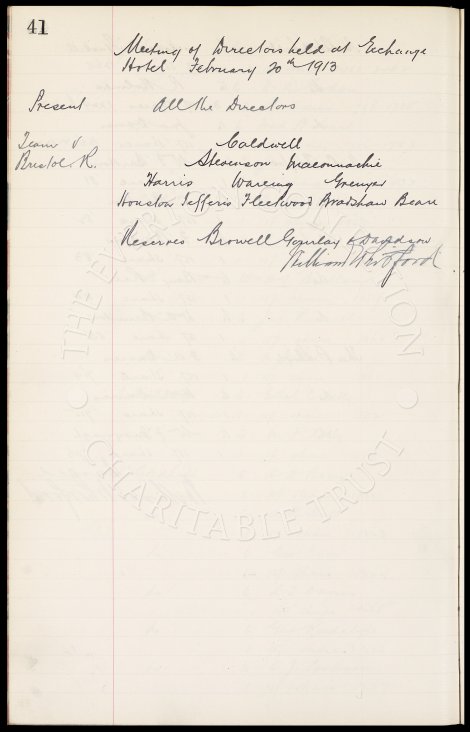 41
Meeting of Directors held at Exchange
Hotel February 20th 1913
Present All the Directors
Team v Caldwell
Bristol R. Stevenson Maconnachie
Harris Wareing Grenyer
Houston Jefferis Fleetwood Bradshaw Beare
Reserves Browell Gourlay & Davidson
William Whitford
THE EVERTON COLLECTION
CHARITABLE TRUST